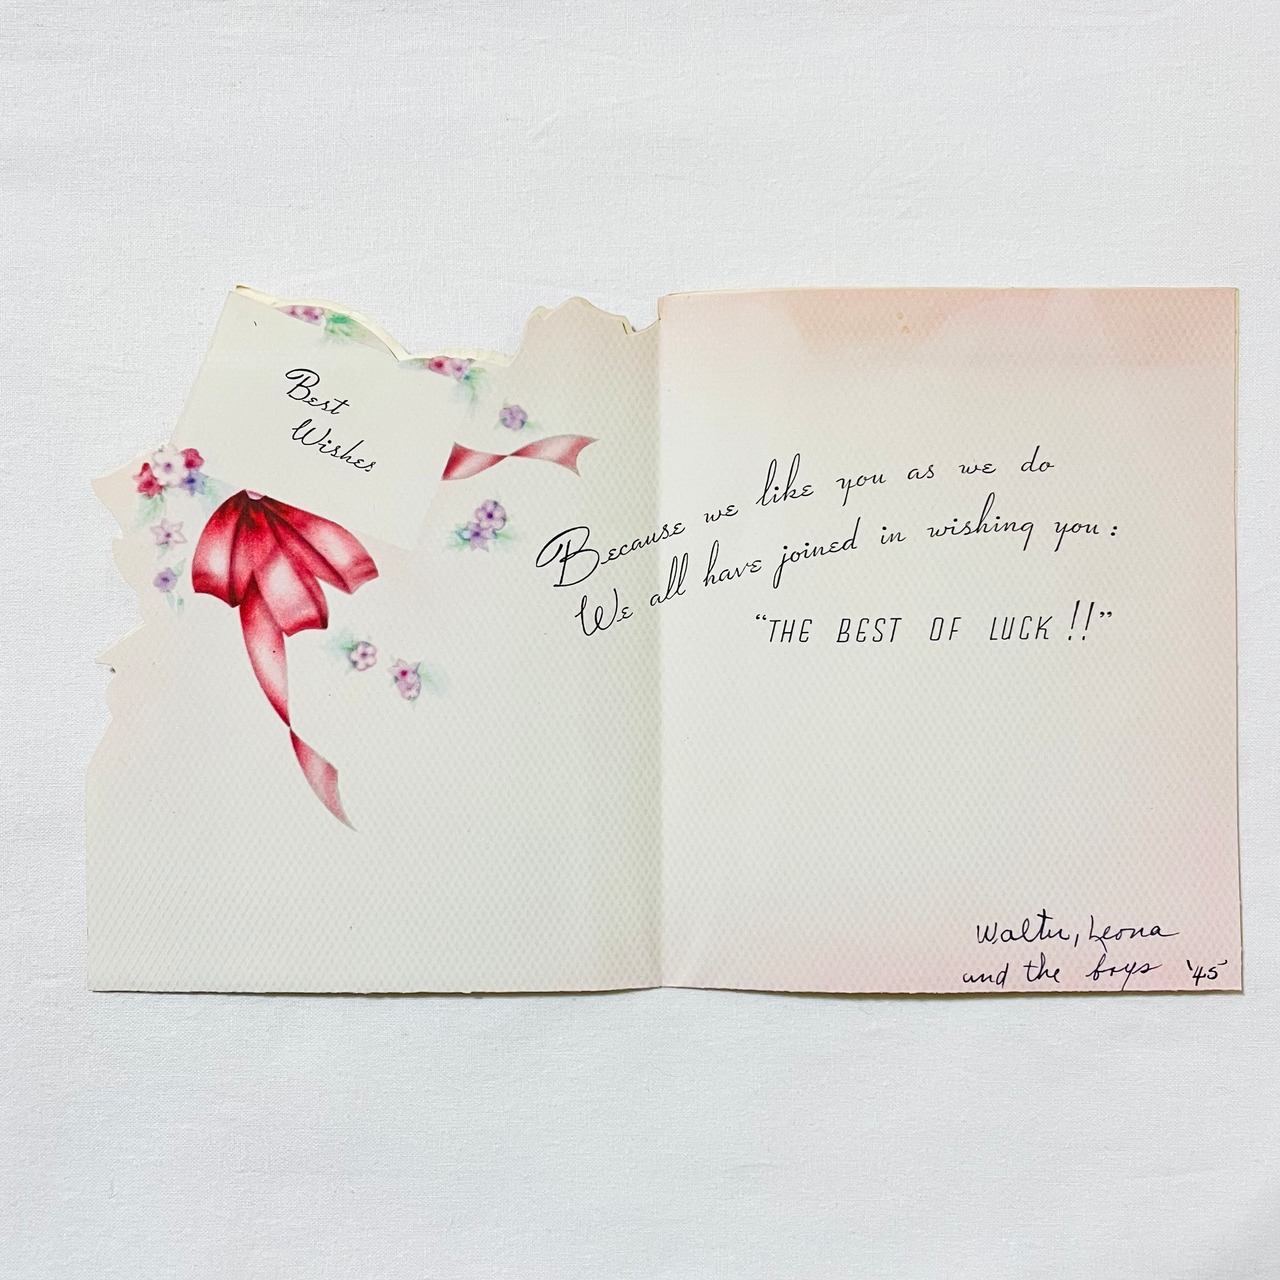 Best
Wishes
Because we like you as we do
We all have joined in wishing you:
"THE BEST OF LUCK!!"
Walter, Leona
and the boys '45